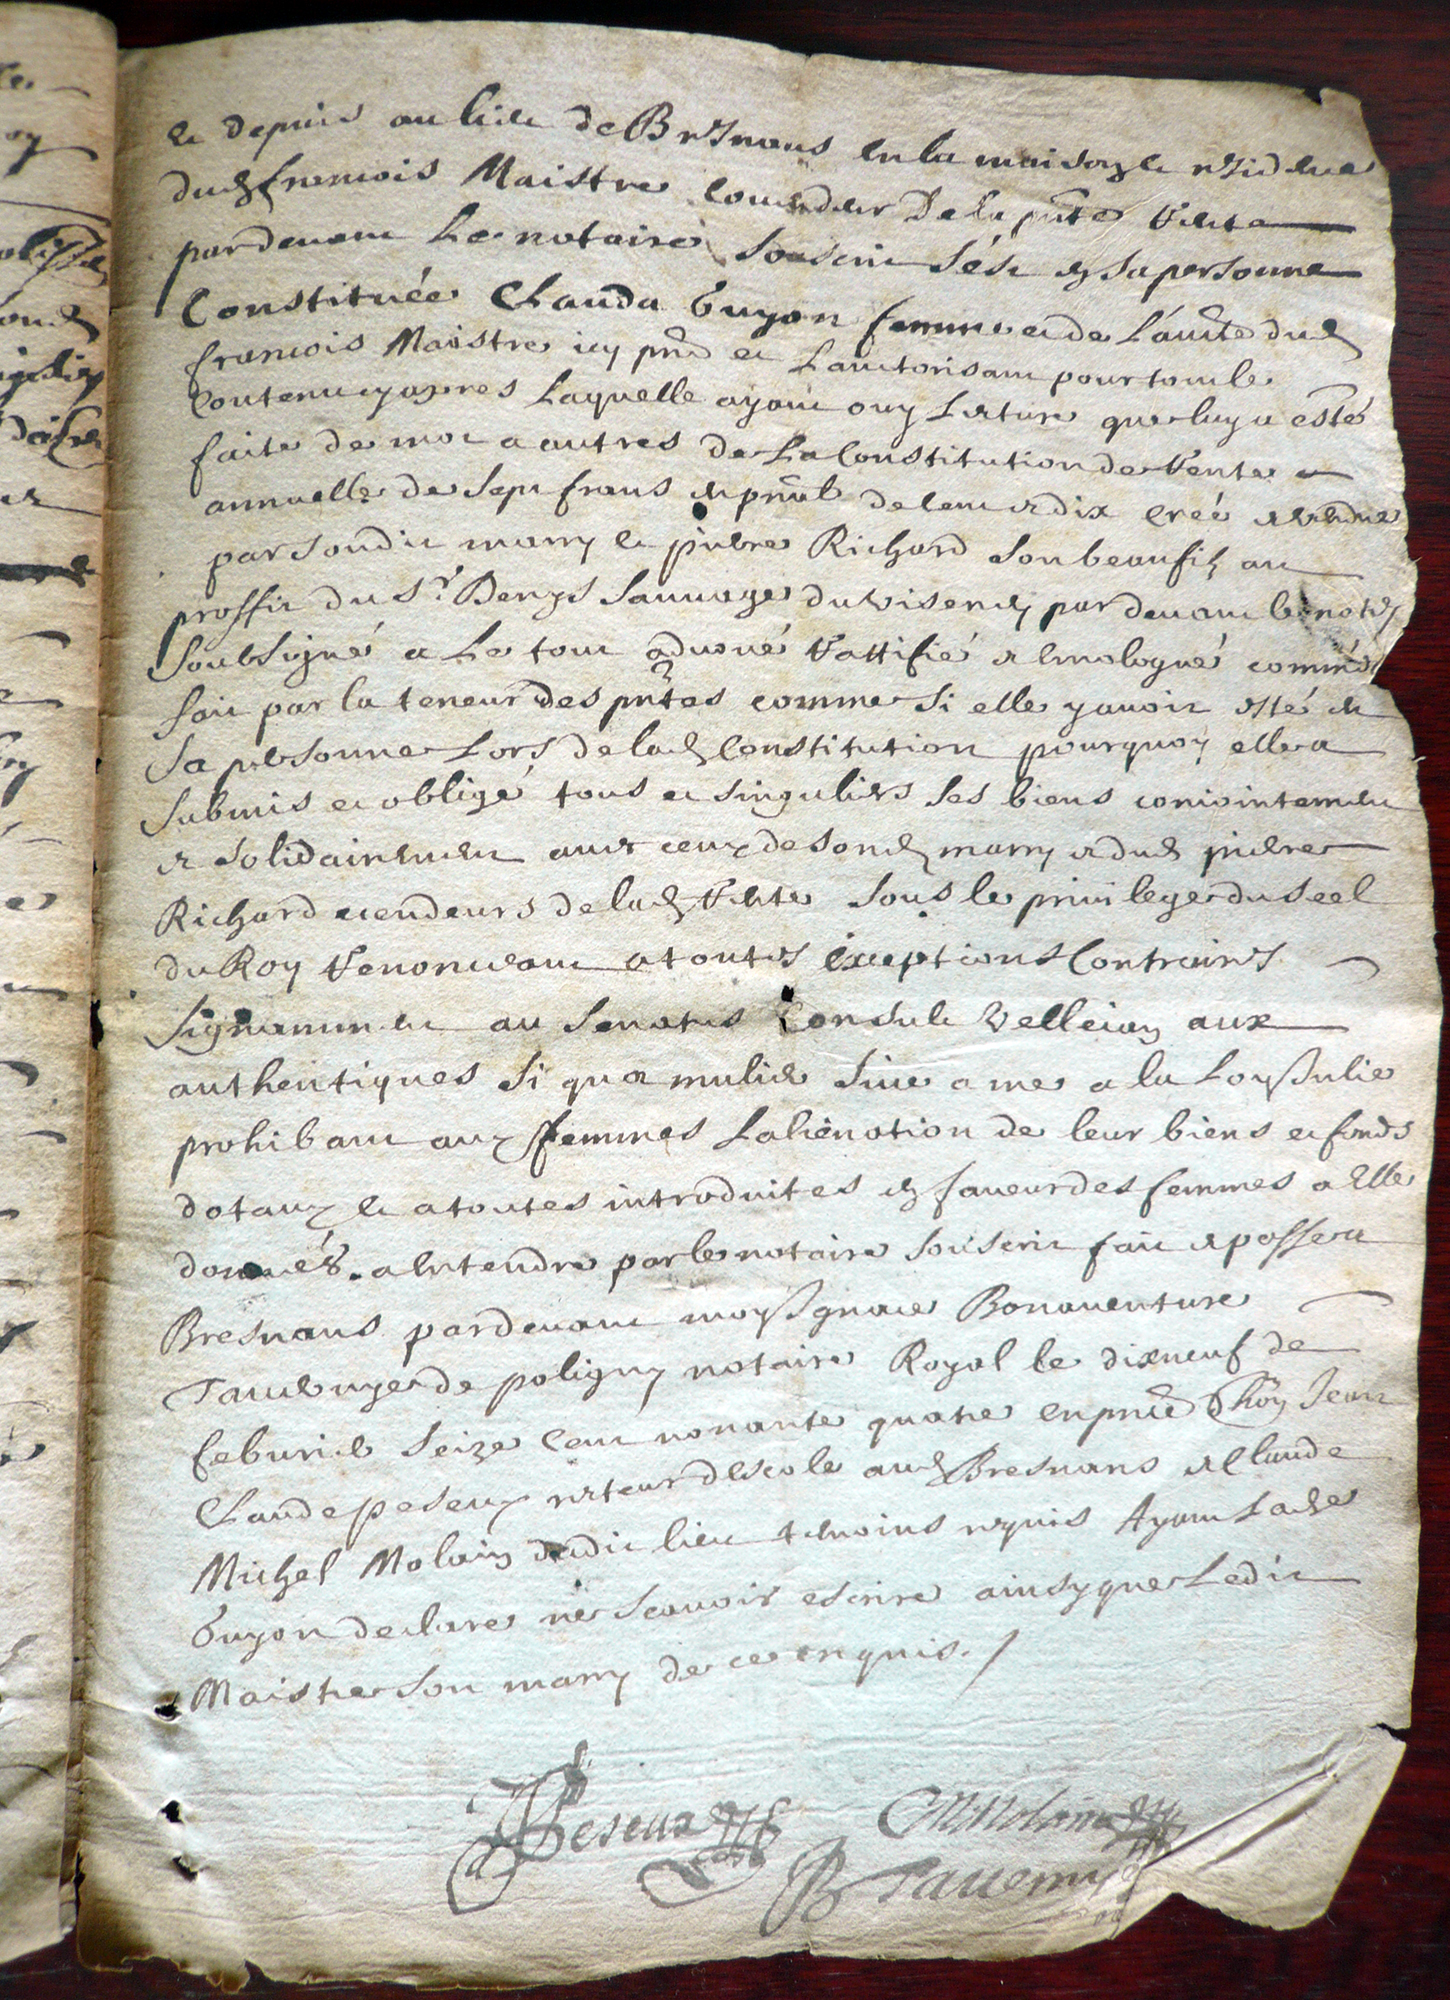 et depuis au lieu de Bresnans en la maison et residence
dud françois Maistre covendeur de la pnte rente
pardevant le notaire souscrit s'est en sa personne
Constituée Clauda Guyon femme et de l'aucté dud
françois Maistre icy pnt et l'auctorisant pour tout le
Contenu cy apres Laquelle ayant ouy lecture que luy a esté
faite de mot a autres de La Constitution de rente
annuelle de sept frans en pnal de cent et dix creé et vendue
par son dit marry et pierre Richard son beau filz au
proffit du Sr Denys Sauvage du visenay pardevant le notre
soubsigné a Le tout advoué rattifié et emologué comme
fait par la teneur des pntes comme si elle y avoit esté en
sa personne Lors de lad Constitution pourquoy elle a
submis et obligé tous et singuliers ses biens conjointement
et solidairement avec ceux de sond marry et dud pierre
Richard vendeurs de lad rente sous le privilege du seel
du Roy renonceant a toutes exceptions Contraires
signamment au senatus Consule velleian aux
authentiques si qua mulier sive a me a la Loy Julie
prohibant aux femmes L'alienation de leur biens et fonds
dotaux et a toutes introduites en faveur des femmes a Elle
donnés a entendre par le notaire souscrit fait et passé a
Bresnans pardevant moy Ignace Bonaventure
de poligny notaire Royal le dixneuf de
febvrier seize cent nonante quatre en pnce d'hon Jean
Claude peseux recteur d'escole aud Bresnans et Claude
Michel Molain dudit lieu temoins requis Ayant Lade
Guyon declare ne scavoir escrire ainsy que Ledit
Maistre son marry de ce enquis. /
Peseux
CM Molain
B